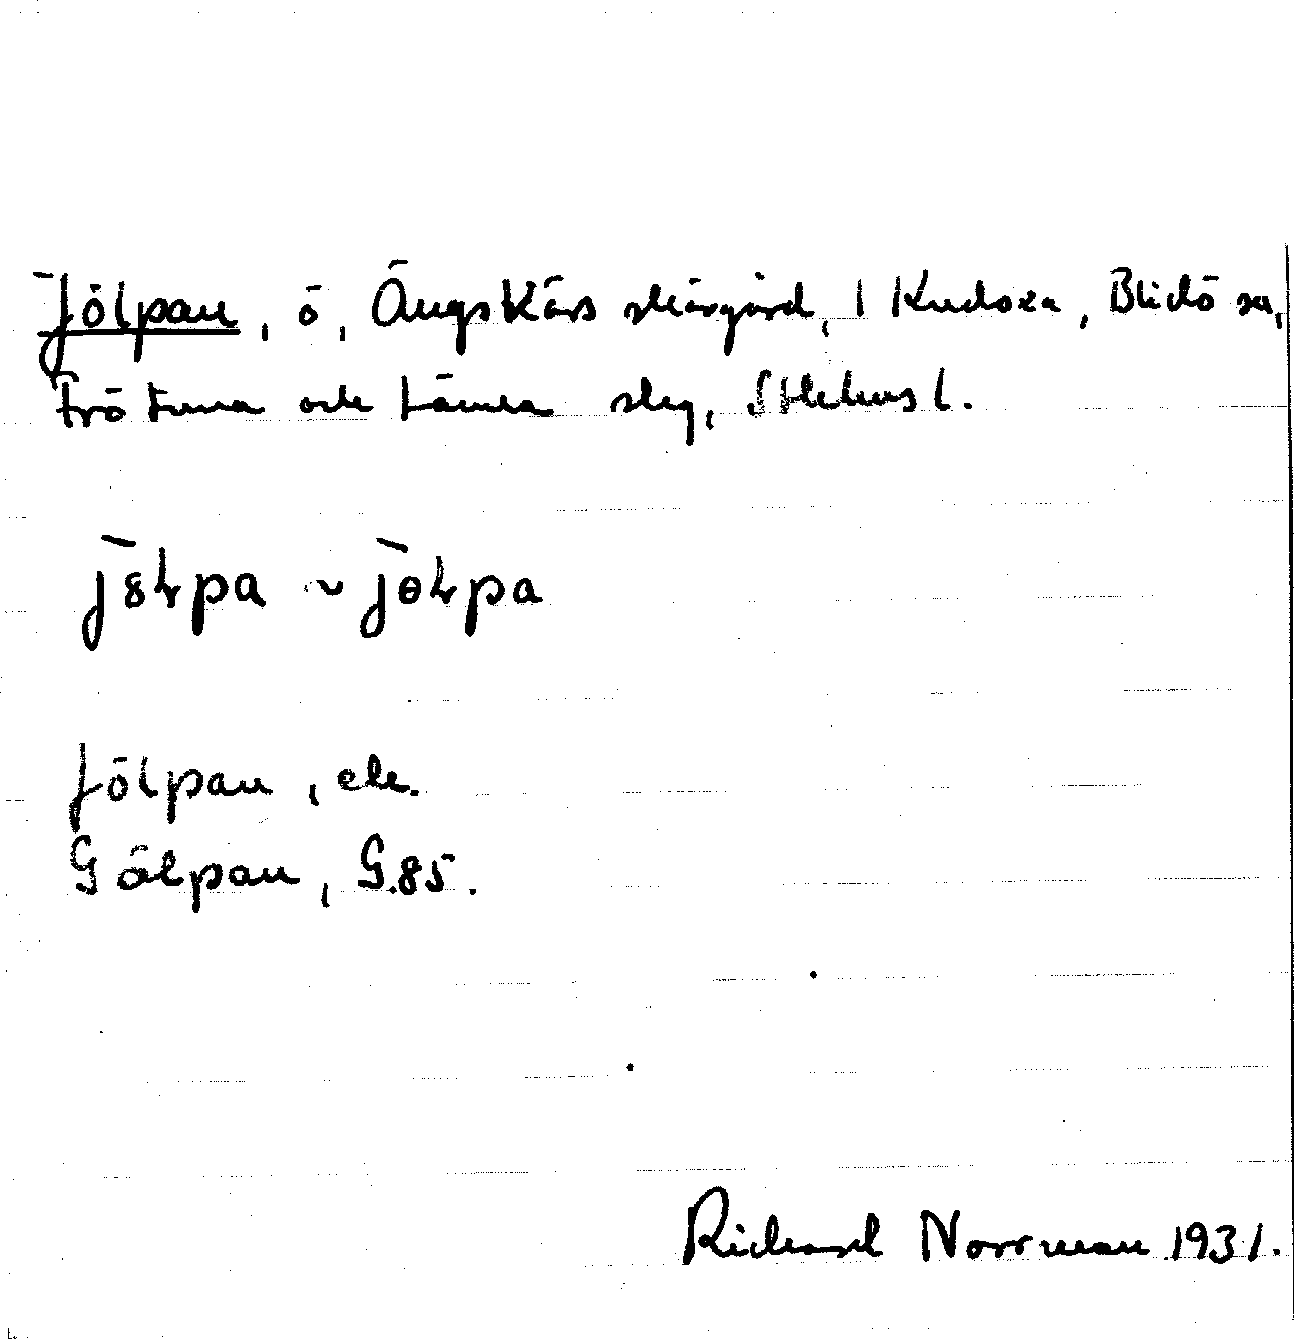 Jölpan, ö, Ängskärs skärgård, 1 Kudoxa, Blidö sn,
Frötuna och Länna skg, Sthlms l.
Jölpan, ek.
Gölpan, G.85.
Richard Norrman 1931.